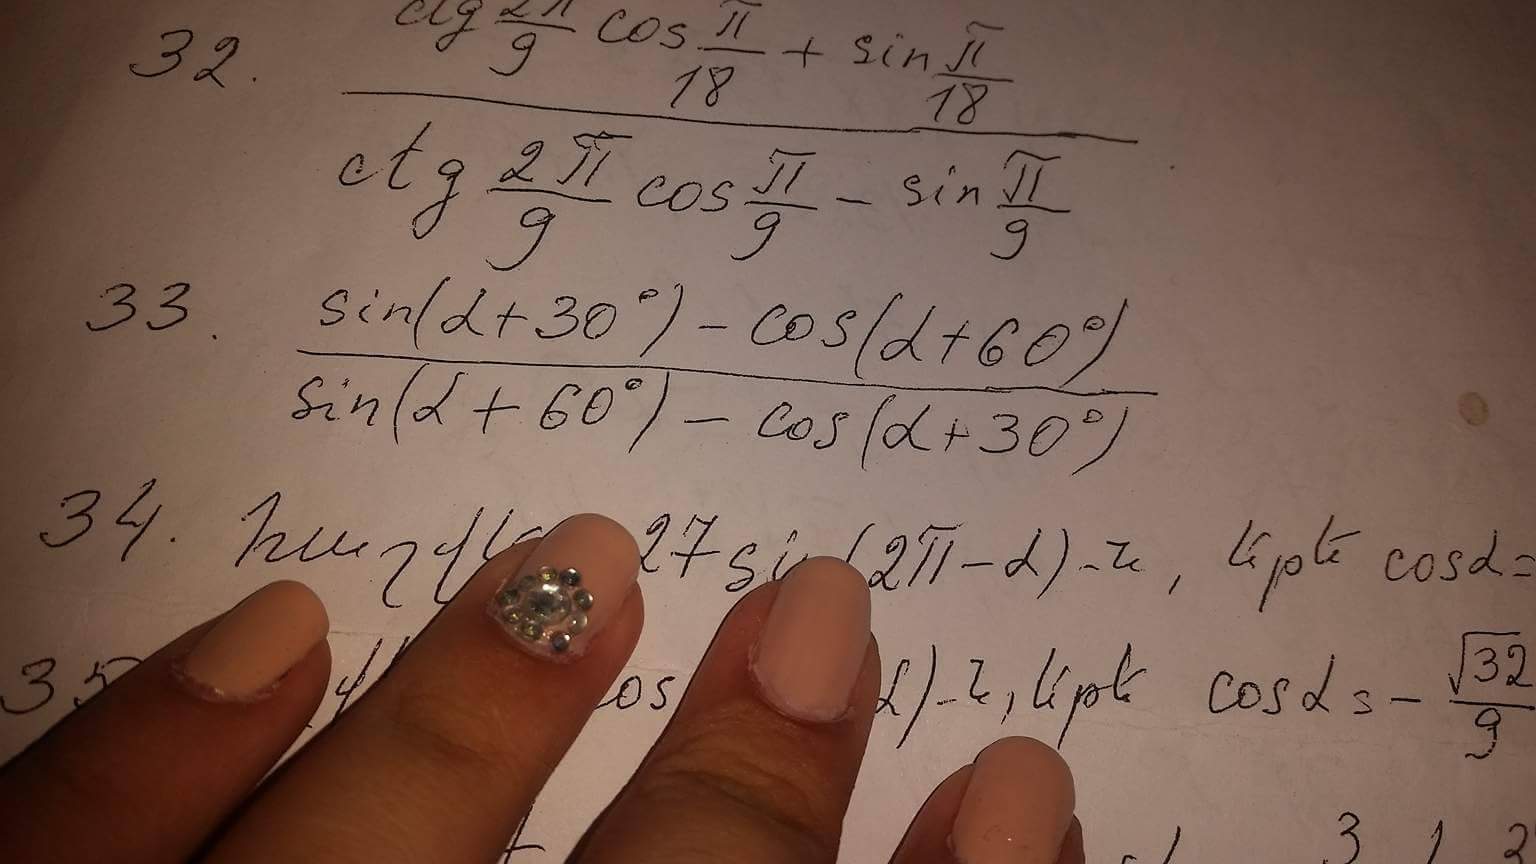 32. ctg 2π/9 cos π/18 + sin π/18
ctg 2π/9 cos π/9 - sin π/9
33. sin(α+30°) - cos(α+60°)
sin(α+60°) - cos(α+30°)
34. 27 sin(2π-α)-ն, եթե cosα=
35 cos α)-ն, եթե cosα = - √32/9
3 1 2